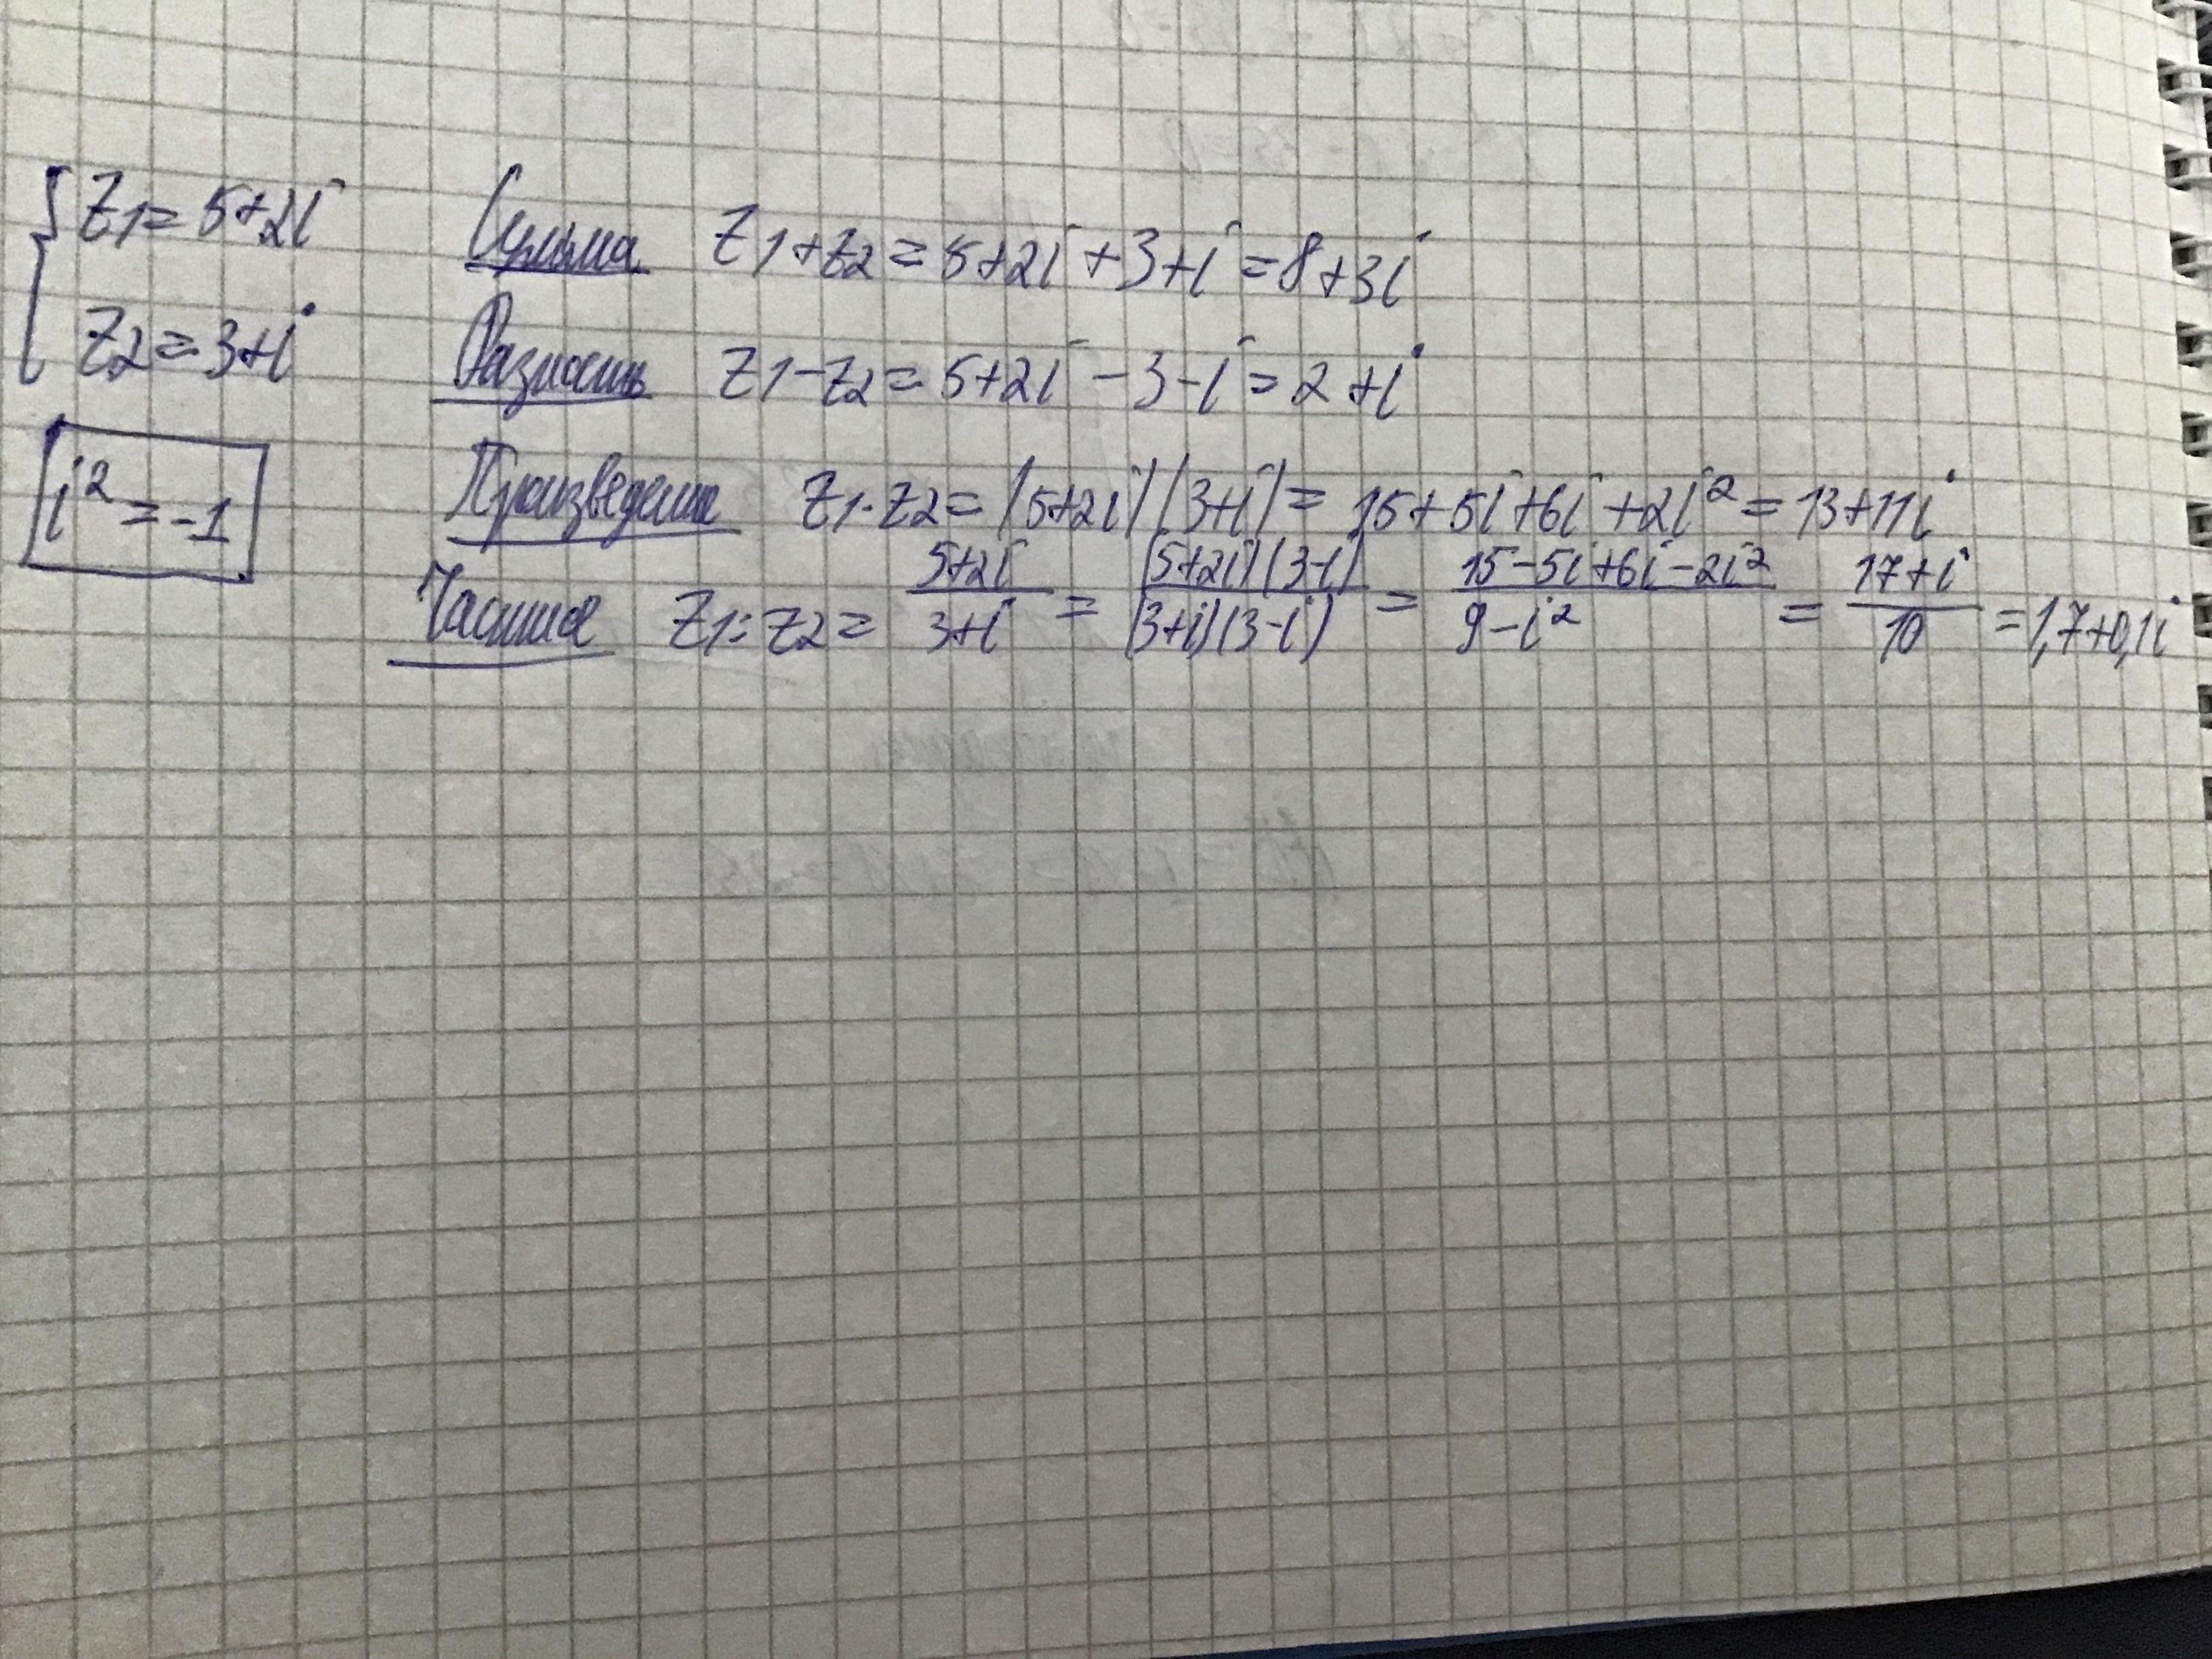 z1=5+2i
z2=3+i
i²=-1
Сумма z1+z2=5+2i+3+i=8+3i
Разность z1-z2=5+2i-3-i=2+i
Произведение z1·z2=(5+2i)(3+i)=15+5i+6i+2i²=13+11i
Частное z1:z2=(5+2i)/(3+i)=((5+2i)(3-i))/((3+i)(3-i))=(15-5i+6i-2i²)/(9-i²)=(17+i)/10=1,7+0,1i